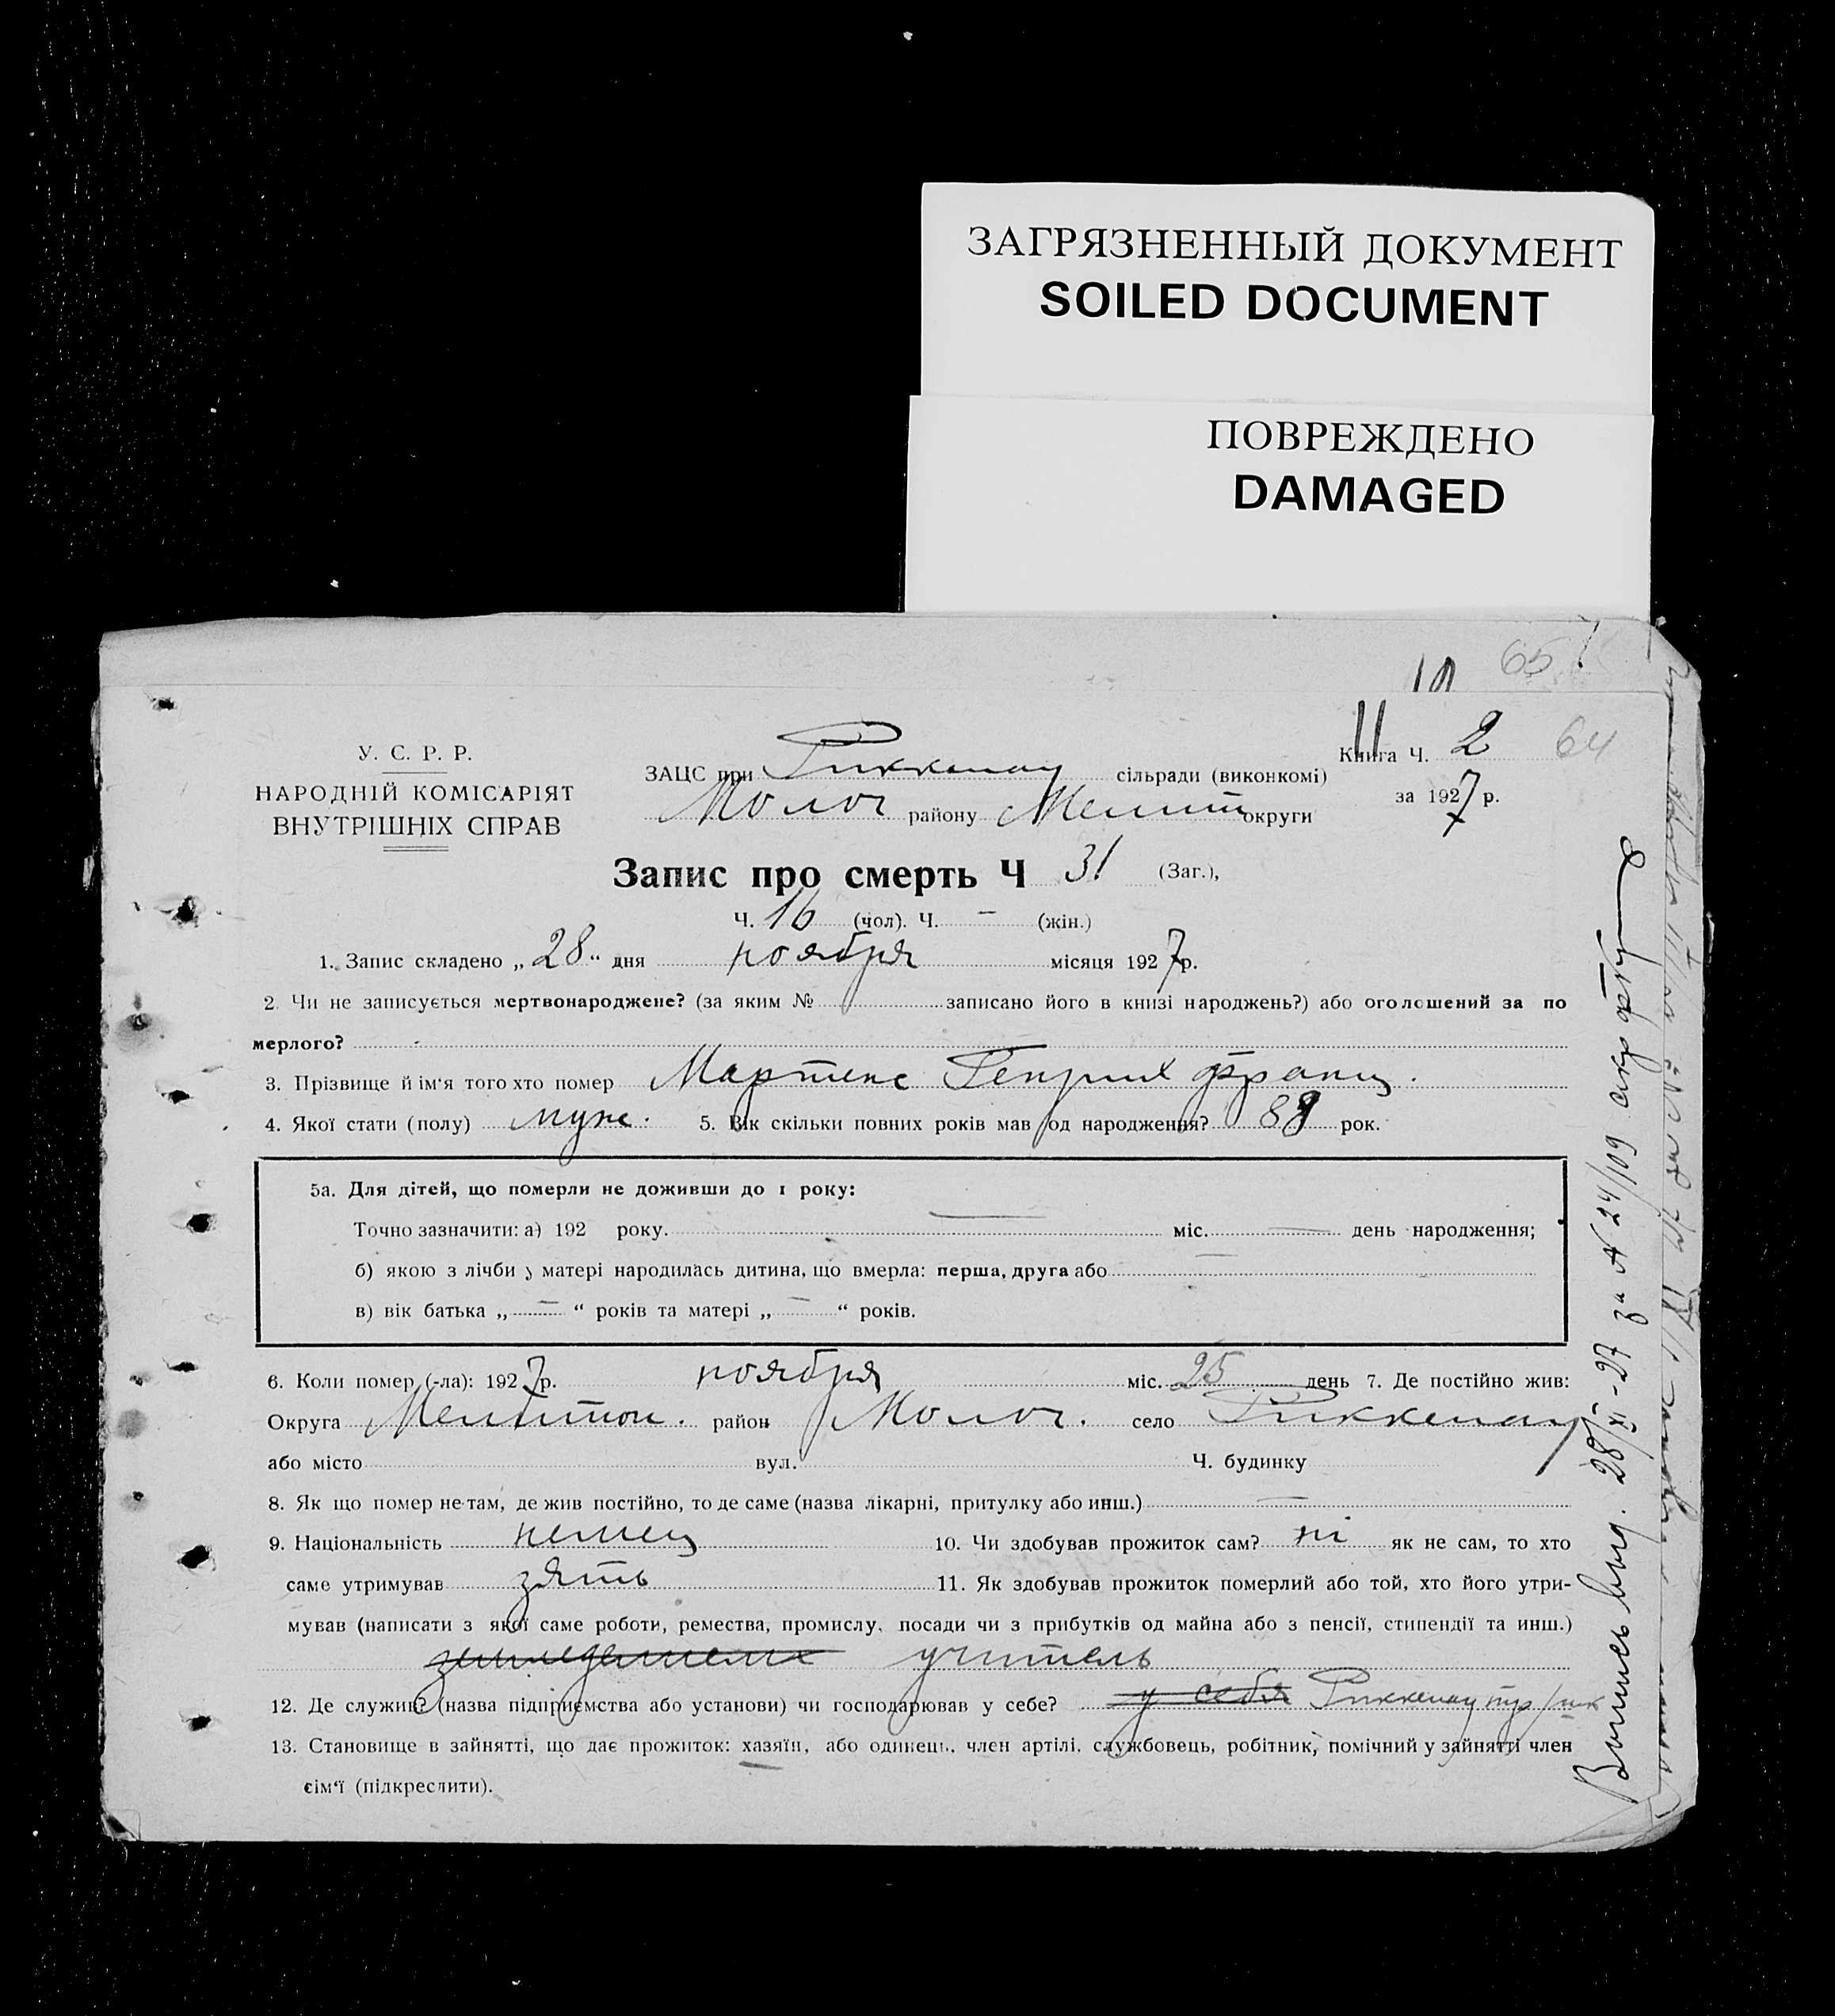 ЗАГРЯЗНЕННЫЙ ДОКУМЕНТ
SOILED DOCUMENT
ПОВРЕЖДЕНО
DAMAGED
65
У. С. Р. Р.
НАРОДНІЙ КОМІСАРІЯТ
ВНУТРІШНІХ СПРАВ
ЗАЦС при Риккенау сільради (виконкомі)
Молоч району Мелит округи
Книга Ч. 2 64
за 1927 р.
Запис про смерть Ч 31 (Заг.),
Ч. 16 (чол). Ч. – (жін.)
1. Запис складено „28“ дня ноября місяця 1927р.
2. Чи не записується мертвонароджене? (за яким № записано його в книзі народжень?) або оголошений за по
мерлого?
3. Прізвище й ім‘я того хто помер Мартенс Генрих Франц.
4. Якої стати (полу) муж. 5. Вік скільки повних років мав од народження? 88 рок.
5а. Для дітей, що померли не доживши до 1 року:
Точно зазначити: а) 192 року. — міс. — день народження;
б) якою з лічби у матері народилась дитина, що вмерла: перша, друга або —
в) вік батька „ – “ років та матері „ – “ років.
6. Коли помер (-ла): 1927р. ноября міс. 25 день 7. Де постійно жив:
Округа Мелитоп. район Молоч. село Риккенау
або місто вул. Ч. будинку
8. Як що помер не там, де жив постійно, то де саме (назва лікарні, притулку або инш.) —
9. Національність немец 10. Чи здобував прожиток сам? ні як не сам, то хто
саме утримував зять 11. Як здобував прожиток померлий або той, хто його утри-
мував (написати з якої саме роботи, ремества, промислу, посади чи з прибутків од майна або з пенсії, стипендії та инш.)
учитель
12. Де служив? (назва підприємства або установи) чи господарював у себе? у себя Риккенау
13. Становище в зайнятті, що дає прожиток: хазяїн, або одинець, член артілі, службовець, робітник, помічний у зайнятті член
сім‘ї (підкреслити).
Выпись выд. 28/XI-27 за N 24/109